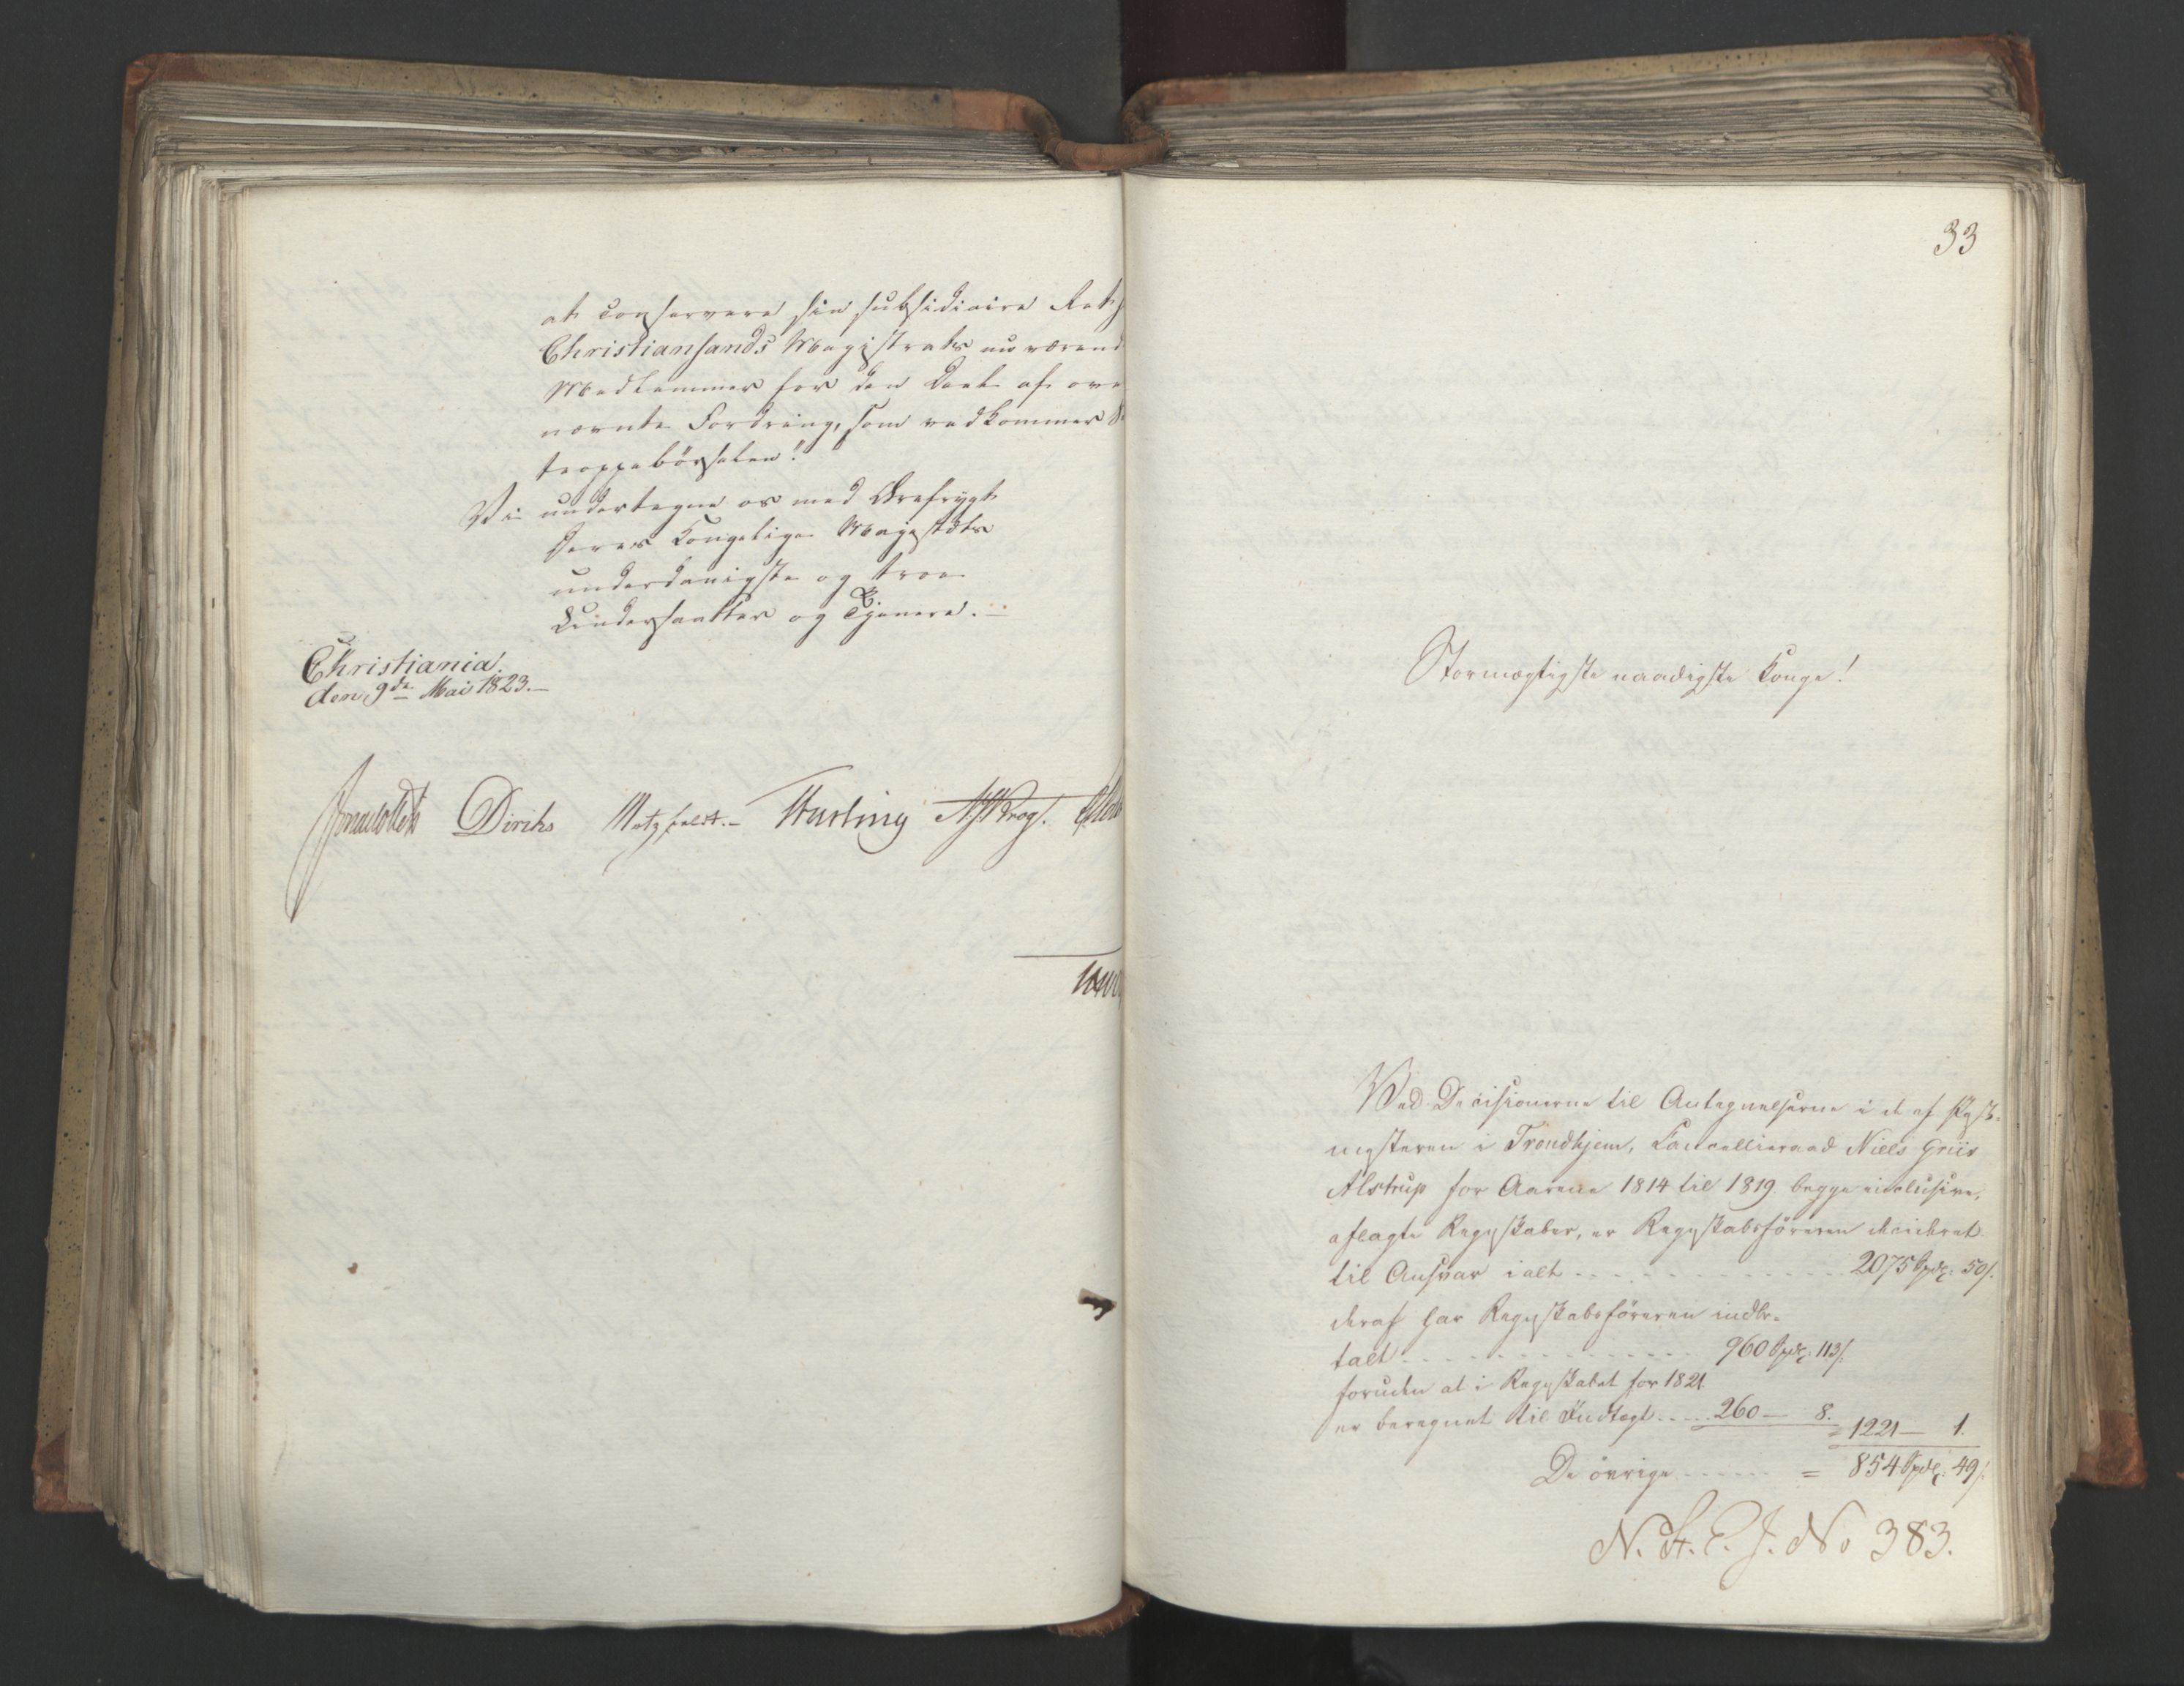 at conservere sin subsidiaire Ret
Christiansands Magistrats nu værend
Medlemmer for den Deel af ove
nævnte Fordring, som vedkommer
troppebörselen."
Vi undertegne os med Ærefrygt
Deres Kongelige Majestæts
underdanigste og troe
Undersaatter og Tjenere. —
Christiania
den 9de Mai 1823. —
Diriks Motzfeldt. — Hartning
33
Stormægtigste naadigste Konge!
Ved Decisionerne til Antegnelserne i de af Post-
mesteren i Trondhjem, Cancellieraad Niels Griis
Alstrup for Aarene 1814 til 1819 begge inclusive,
aflagte Regnskaber, er Regnskabsföreren decideret
til Ansvar ialt - - - - - 2075 Spdlr: 50/.
deraf har Regnskabsföreren indbe-
talt - - - - - 960 Spdlr: 113/.
foruden at i Regnskabet for 1821
er beregnet til Indtægt - - - - 260 — 8.
= 1221 — 1.
De övrige - - - - - = 854 Spdlr: 49/.
N. St. C. J. No 383.